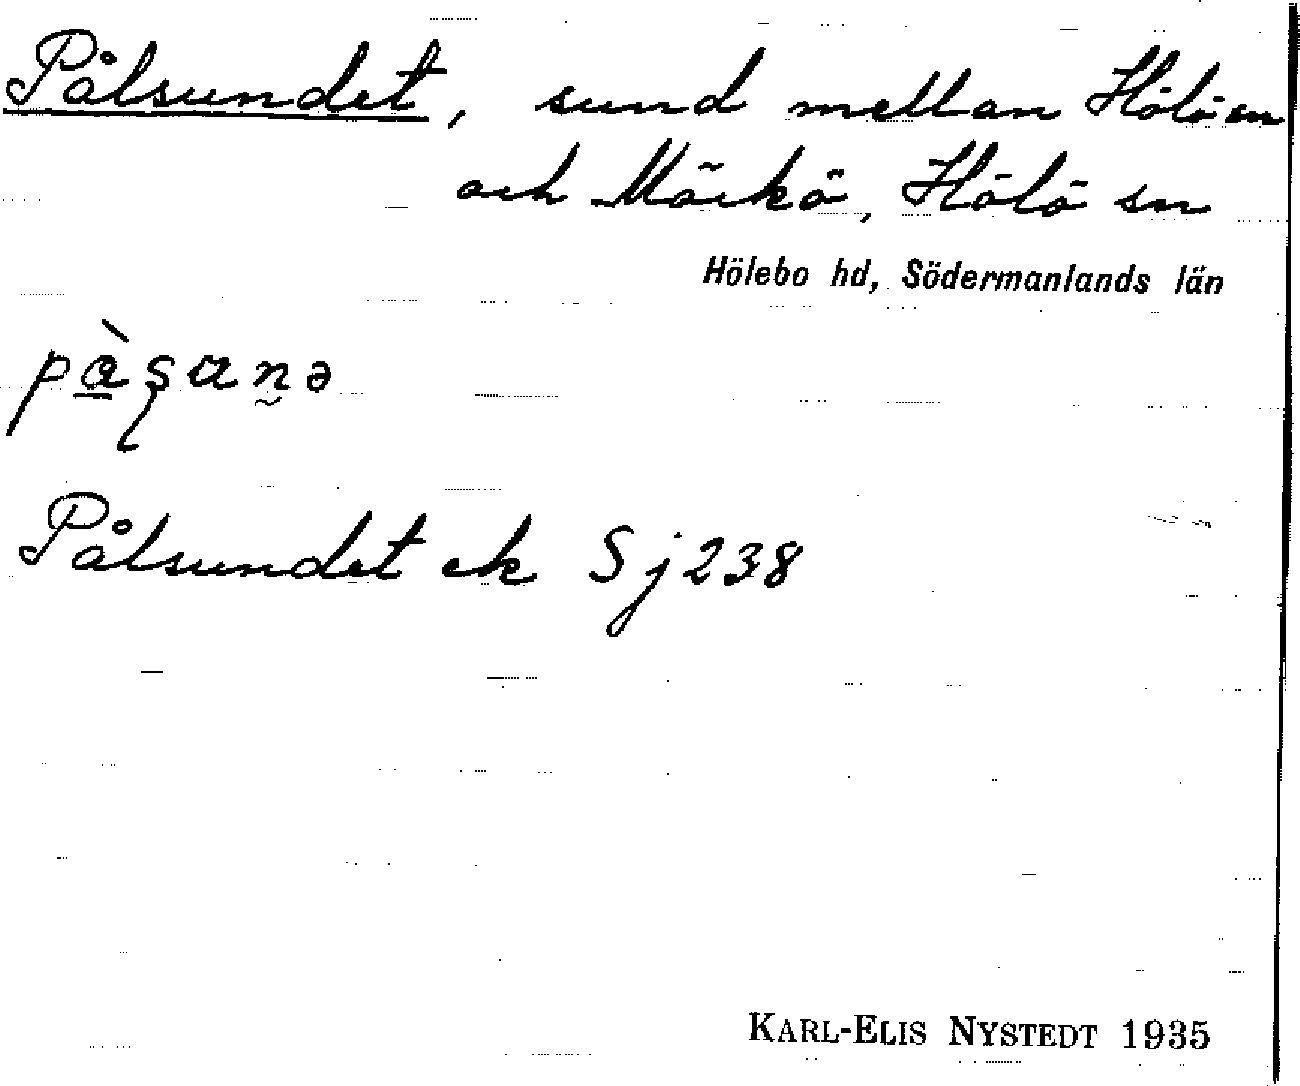 Pålsundet, sund mellan Hölö sn
och Mörkö, Hölö sn
Hölebo hd, Södermanlands län
Pålsundet ek Sj 238
KARL-ELIS NYSTEDT 1935